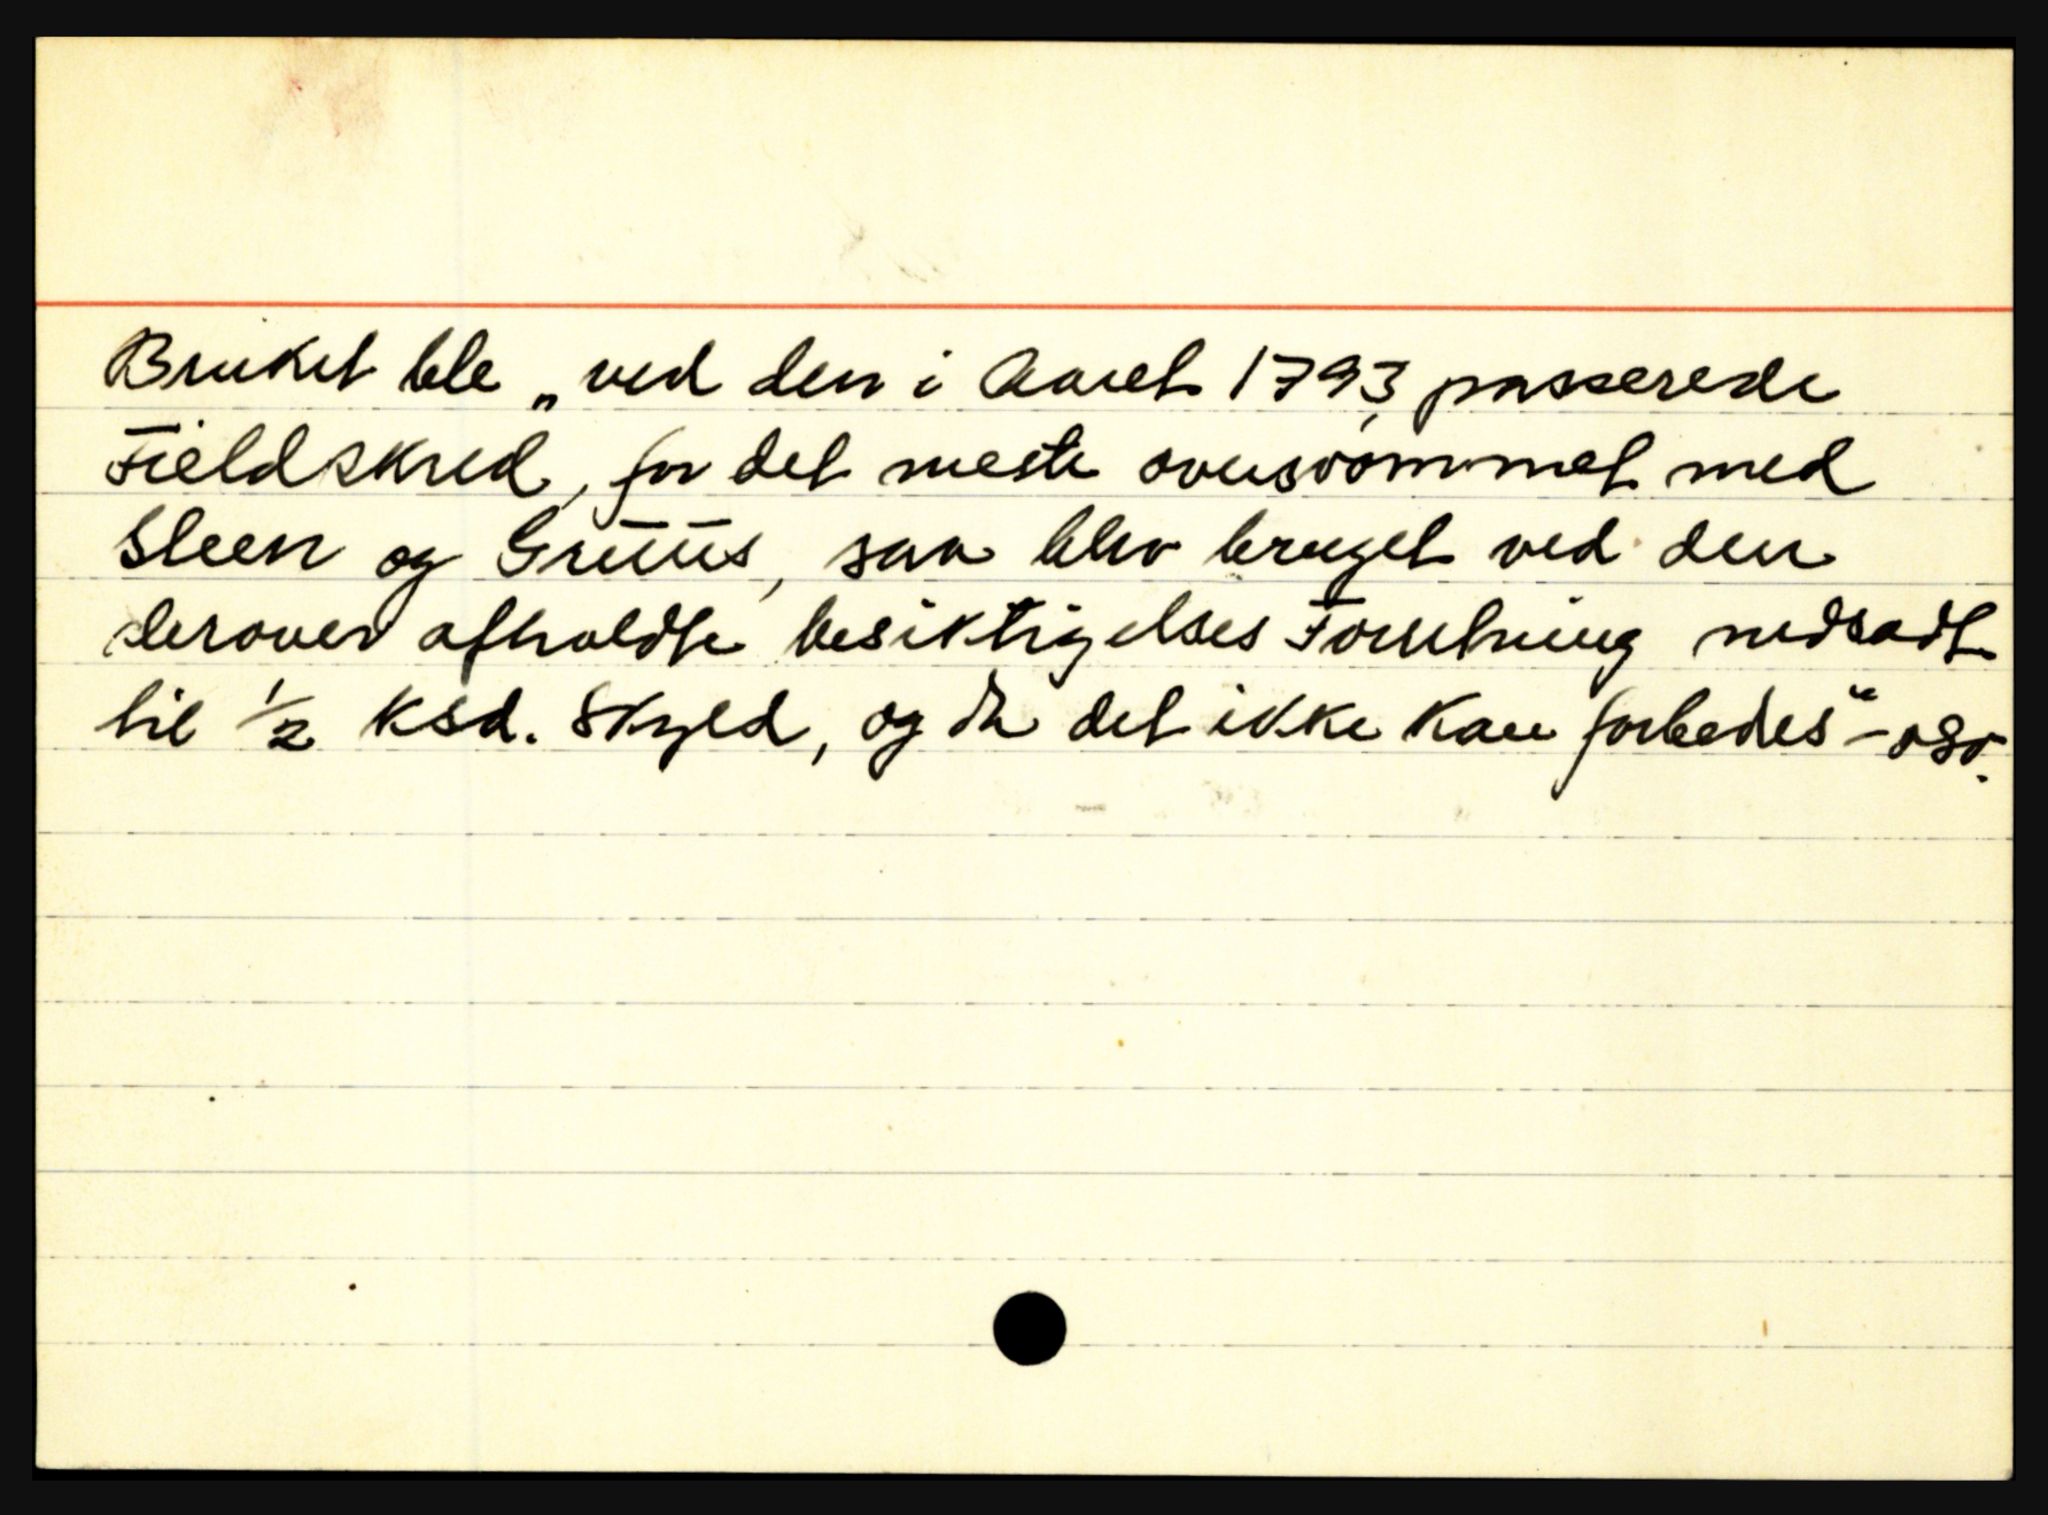 Bruket ble „ved den i Aaret 1793 passerede
Fieldskred, for det meste oversvømmet med
Steen og Gruus, saa blev bruget ved den
derover afholdte besiktigelses Forretning nedsadt
til 1/2 Ksd. Skyld, og da det ikke kan forbedes“ - osv.